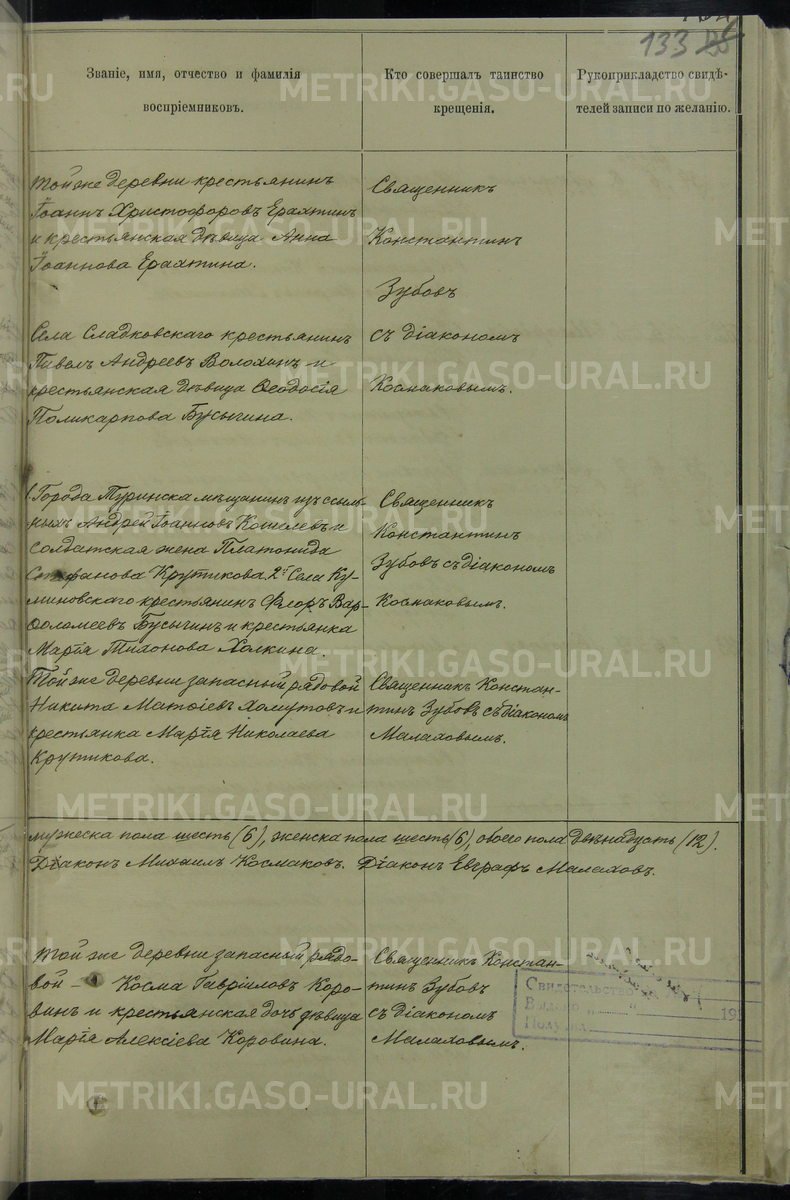 133
Званіе, имя, отчество и фамилія
воспріемниковъ.
Кто совершалъ таинство
крещенія.
Рукоприкладство свидѣ-
телей записи по желанію.
Той же деревни крестьянинъ
Іоаннъ Христофоровъ
и крестьянская дѣвица Анна
Іоаннова
Священникъ
Константинъ
Зубовъ
съ діакономъ
Космаковымъ.
Села Сладковскаго крестьянинъ
Павелъ Андреевъ Волохинъ и
крестьянская дѣвица Ѳеодосія
Поликарпова Бусыгина.
Города Туринска мѣщанинъ изъ ссыль-
ныхъ Андрей Іоанновъ Кошелевъ и
солдатская жена Платонида
Стефанова Крутикова. 2. Села Ку-
миновскаго крестьянинъ Флоръ Вар-
ѳоломеевъ Бусыгинъ и крестьянка
Марія Тихонова Халкина.
Священникъ
Константинъ
Зубовъ съ діакономъ
Космаковымъ.
Той же деревни запасный рядовой
Никита Матѳіевъ Хомутовъ и
крестьянка Марія Николаева
Крутикова.
Священникъ Констан-
тинъ Зубовъ съ діакономъ
Малаховымъ.
мужеска пола шесть (6), женска пола шесть (6), обоего пола двѣнадцать (12).
Діаконъ Михаилъ Космаковъ. Діаконъ Евграфъ Малаховъ.
Той же деревни запасный рядо-
вой — Косма Гавріиловъ Коро-
винъ и крестьянская дочь дѣвица
Марія Алексіева Коровина.
Священникъ Констан-
тинъ Зубовъ
съ діакономъ
Малаховымъ.
Свидѣтельство
Выдано
Получил
METRIKI.GASO-URAL.RU